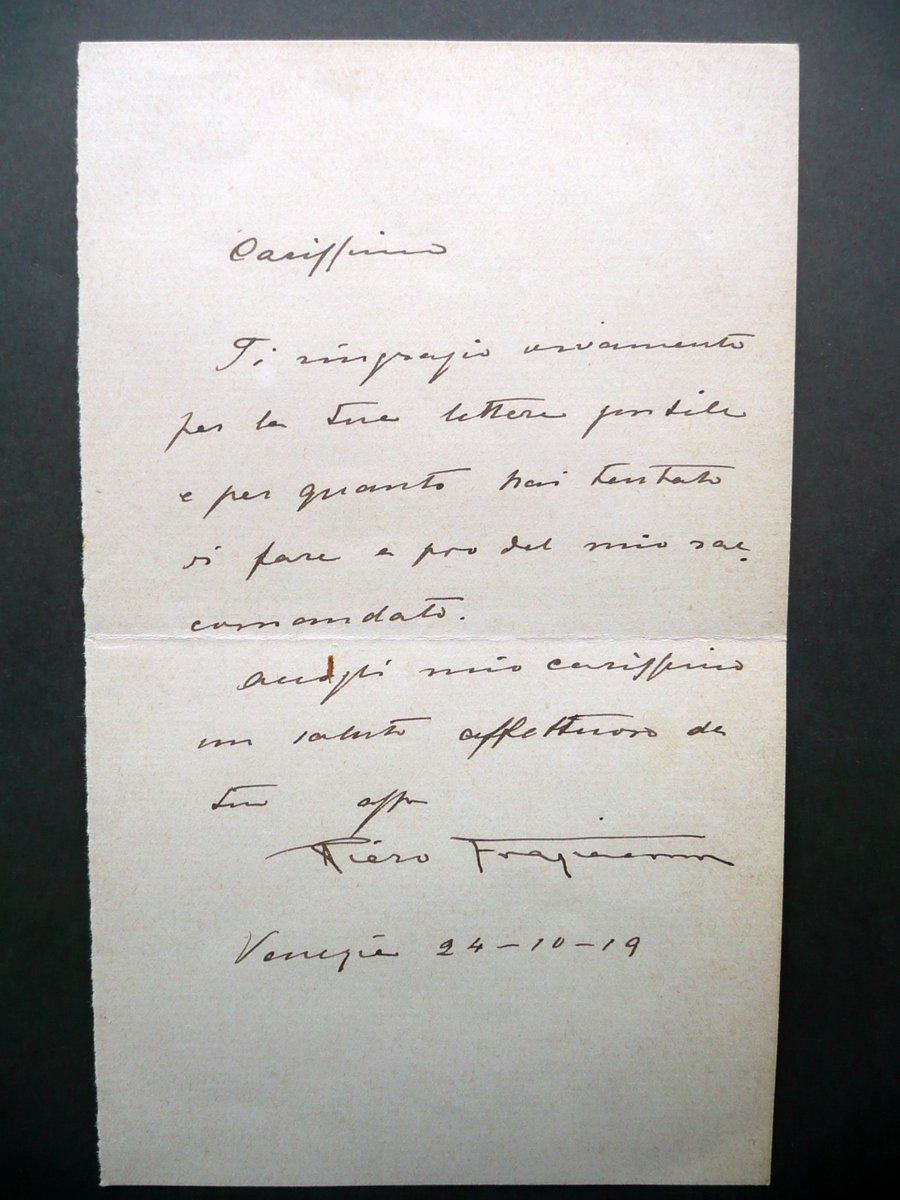 Carissimo
Ti ringrazio vivamente
per la tua lettera gentile
e per quanto hai tentato
di fare a pro del mio rac-
comandato.
Accogli mio carissimo
un saluto affettuoso da
tuo affmo
Piero Fragiacomo
Venezia 24-10-19